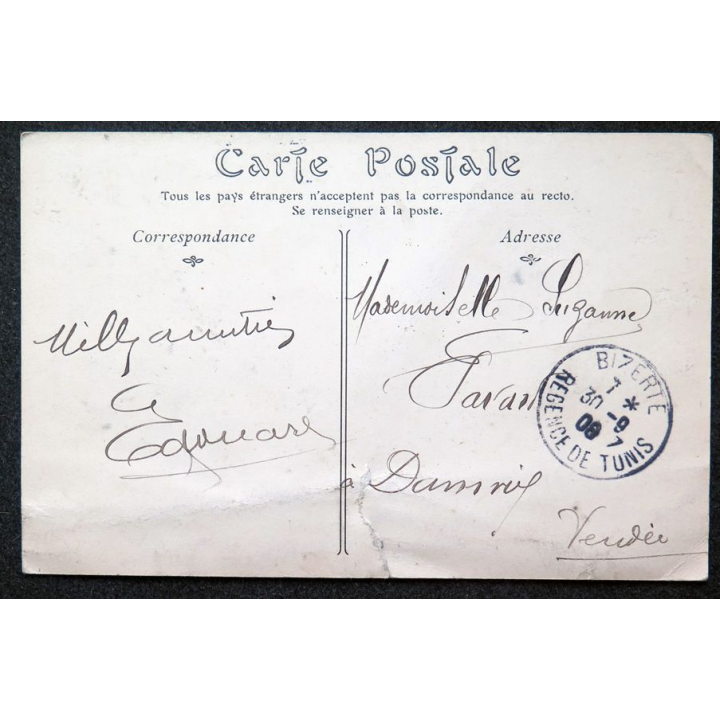 Carte Postale
Tous les pays étrangers n'acceptent pas la correspondance au recto.
Se renseigner à la poste.
Correspondance
Adresse
Mille amitiés
Edouard
Mademoiselle Suzanne
à Damvix
Vendée
BIZERTE
30 -9
08
REGENCE DE TUNIS